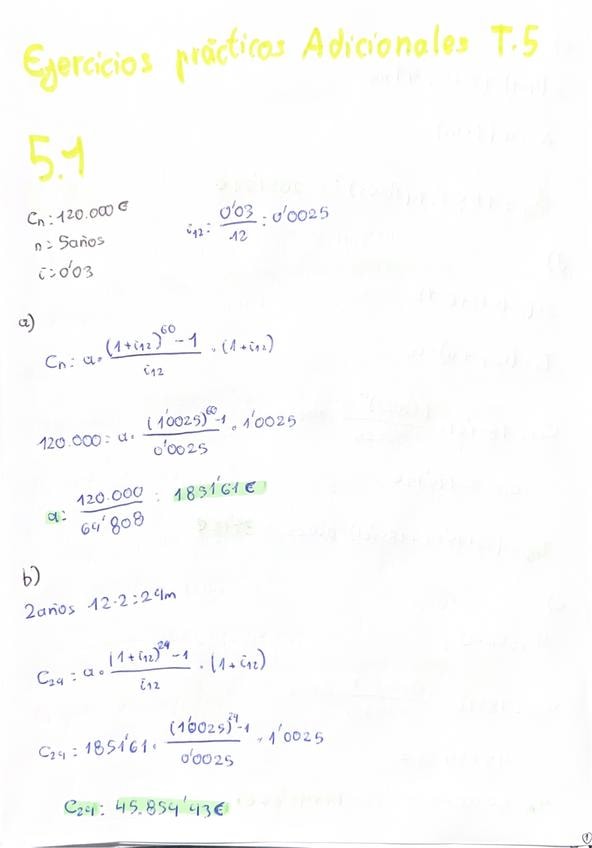 Ejercicios prácticos Adicionales T.5
5.1
Cn: 120.000€
n = 5años
i = 0'03
i12: 0'03/12 : 0'0025
a)
Cn: a · (1+i12)^60 - 1 / i12 · (1+i12)
120.000 = a · (1'0025)^60-1 / 0'0025 · 1'0025
a: 120.000 / 64'808 : 1851'61€
b)
2años 12·2=24m
C24 = a · (1+i12)^24 - 1 / i12 · (1+i12)
C24 = 1851'61 · (1'0025)^24-1 / 0'0025 · 1'0025
C24: 45.854'43€
1